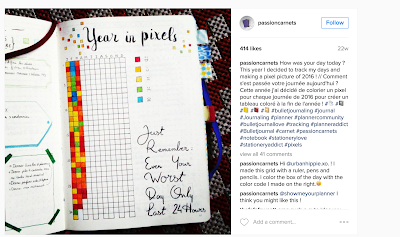 Year in pixels
Just
Remember:
Even Your
Worst
Day Only
Last 24 Hours
passioncarnets
Follow
414 likes
22w
passioncarnets How was your day today ?
This year I decided to track my days and
making a pixel picture of 2016 ! // Comment
s'est passée votre journée aujourd'hui ?
Cette année j'ai décidé de colorier un pixel
pour chaque journée de 2016 pour créer un
tableau coloré à la fin de l'année !
#bulletjournaling #journal
#Journaling #planner #plannercommunity
#bulletjournallove #tracking #planneraddict
#Bulletjournal #carnet #passioncarnets
#notebook #stationerylove
#stationeryaddict #pixels
view all 41 comments
passioncarnets Hi @urbanhippie.xo. I
made this grid with a ruler, pens and
pencils. I color the box of the day with the
color code I made on the right.
passioncarnets @showmeyourplanner I
think you might like this !
Add a comment...